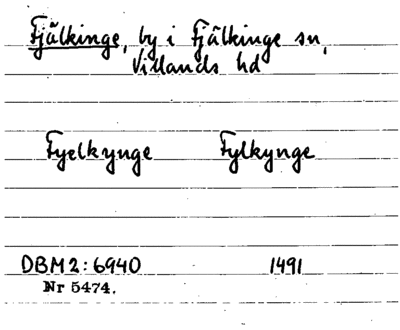 Fjälkinge, by i Fjälkinge sn,
Villands hd
Fyelkynge Fylkynge
DBM2:6940 1491
Nr 5474.